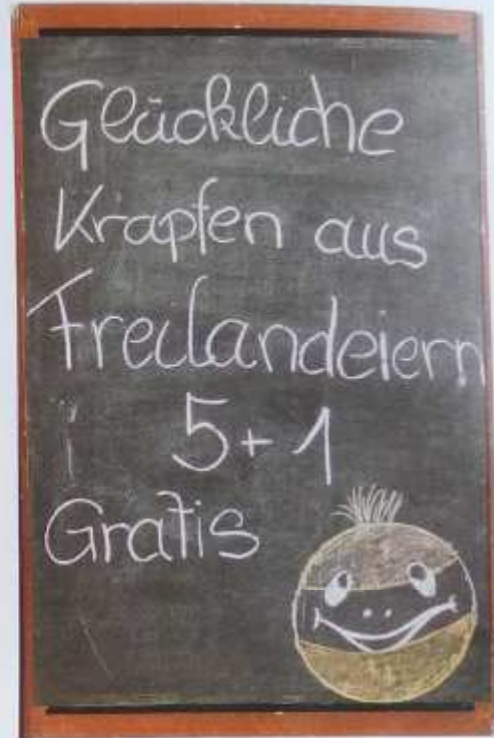 Glückliche
Krapfen aus
Freilandeiern
5+1
Gratis